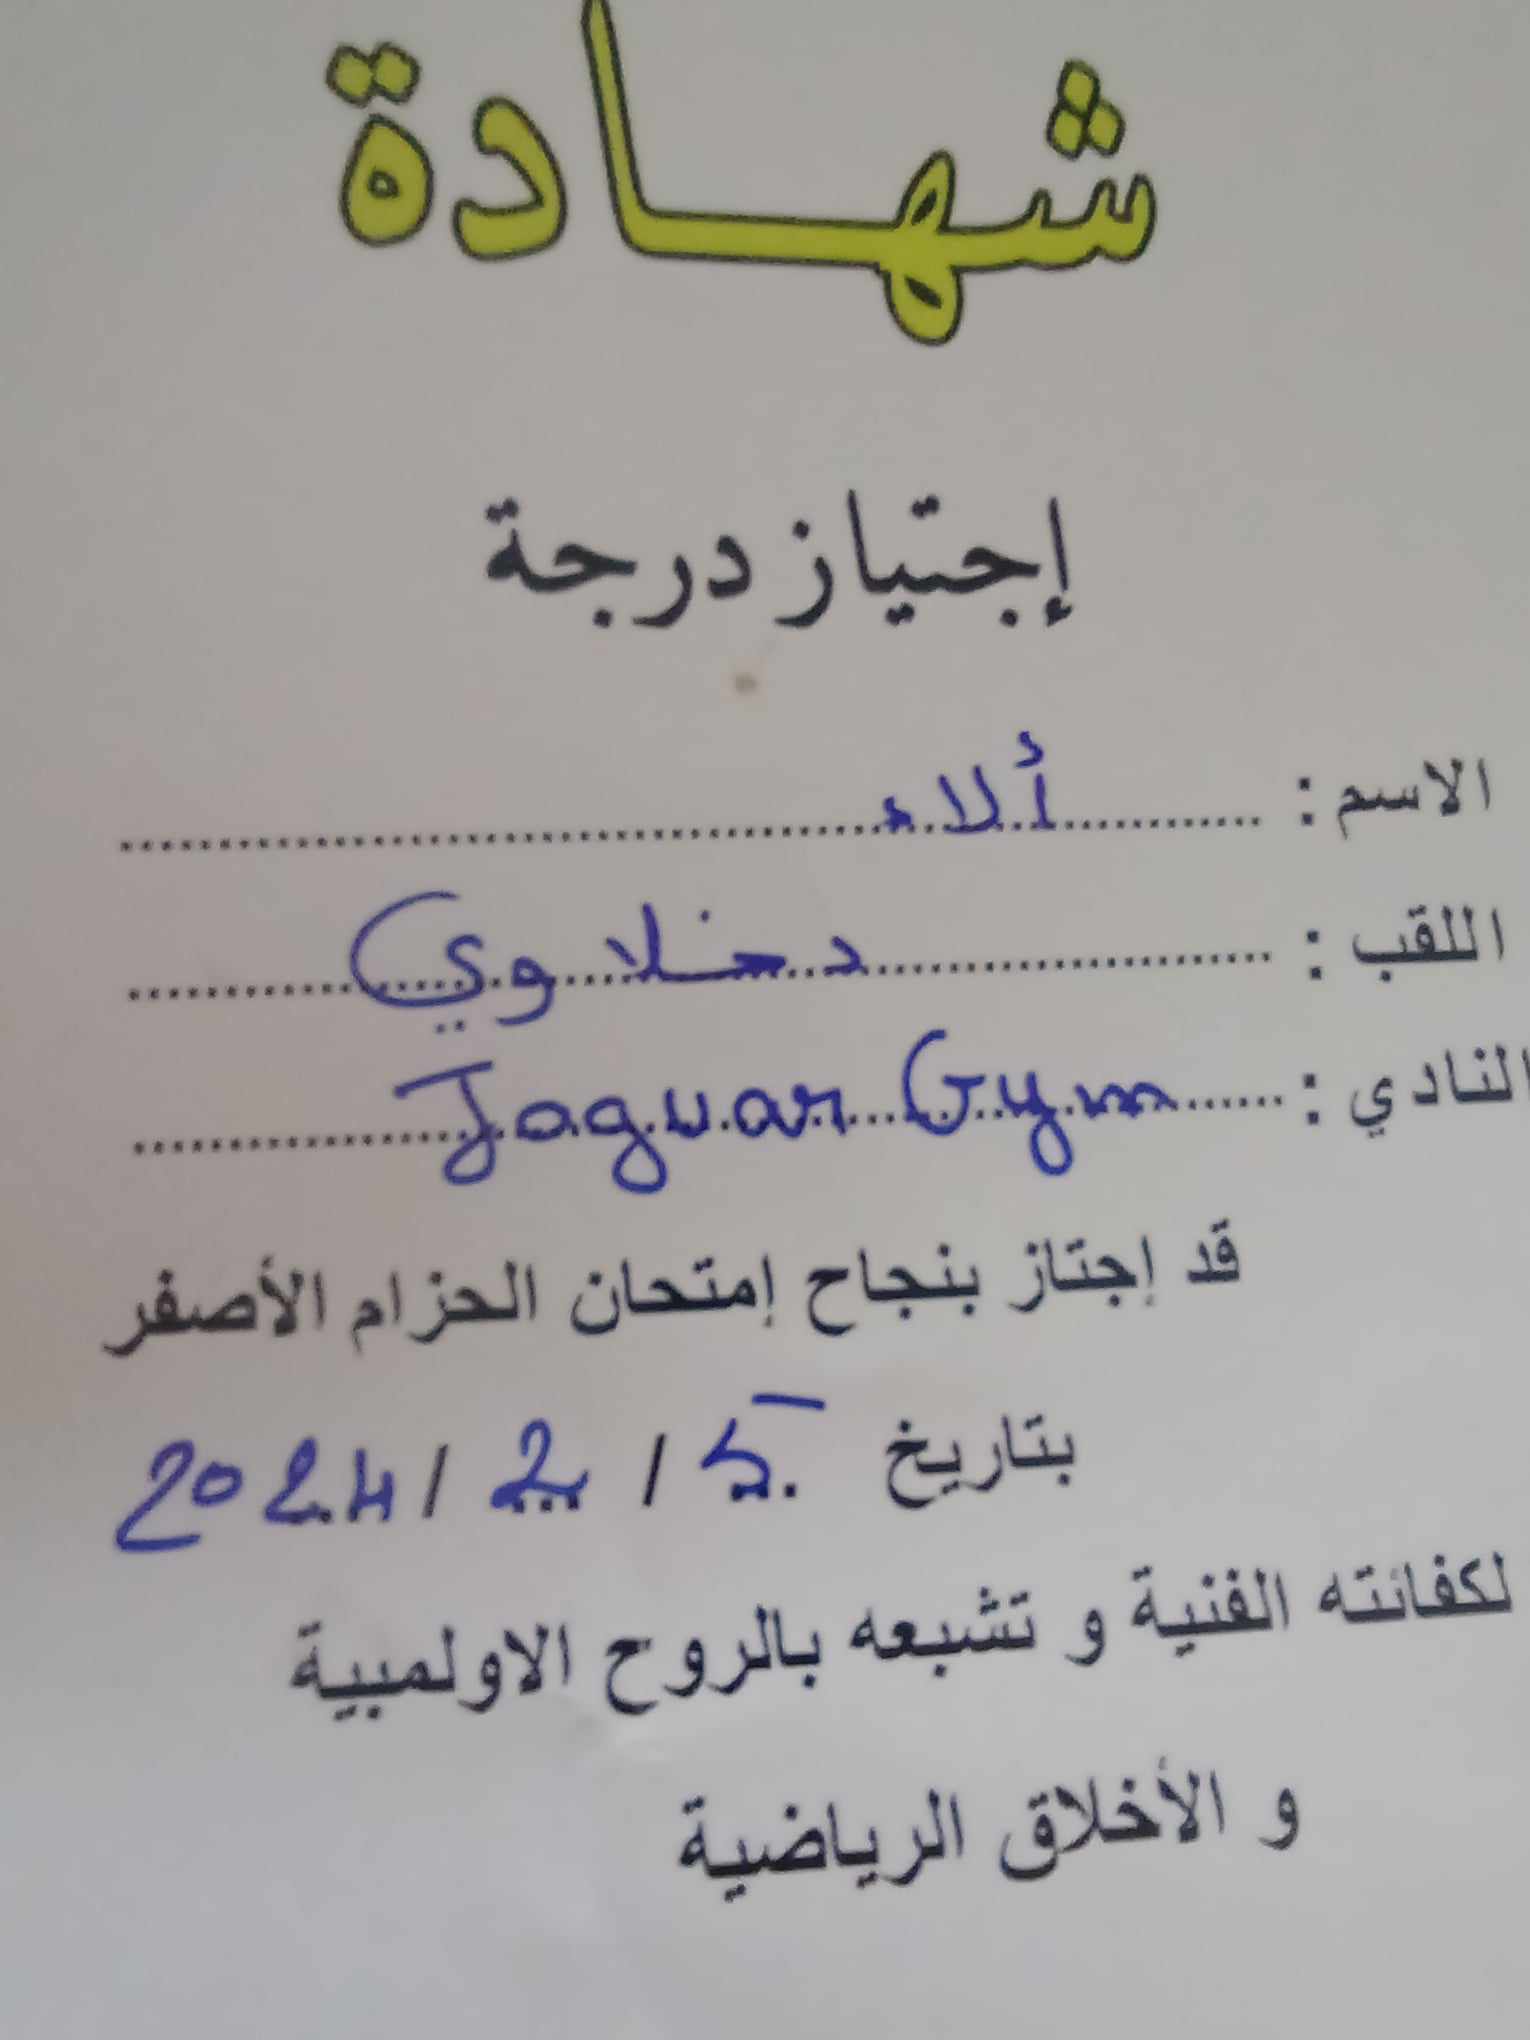 شهادة
إجتياز درجة
الاسم : ألاء
اللقب : دخلاوي
النادي : Jaguar Gym
قد إجتاز بنجاح إمتحان الحزام الأصفر
بتاريخ 5 / 2 / 2024
لكفائته الفنية و تشبعه بالروح الاولمبية
و الأخلاق الرياضية